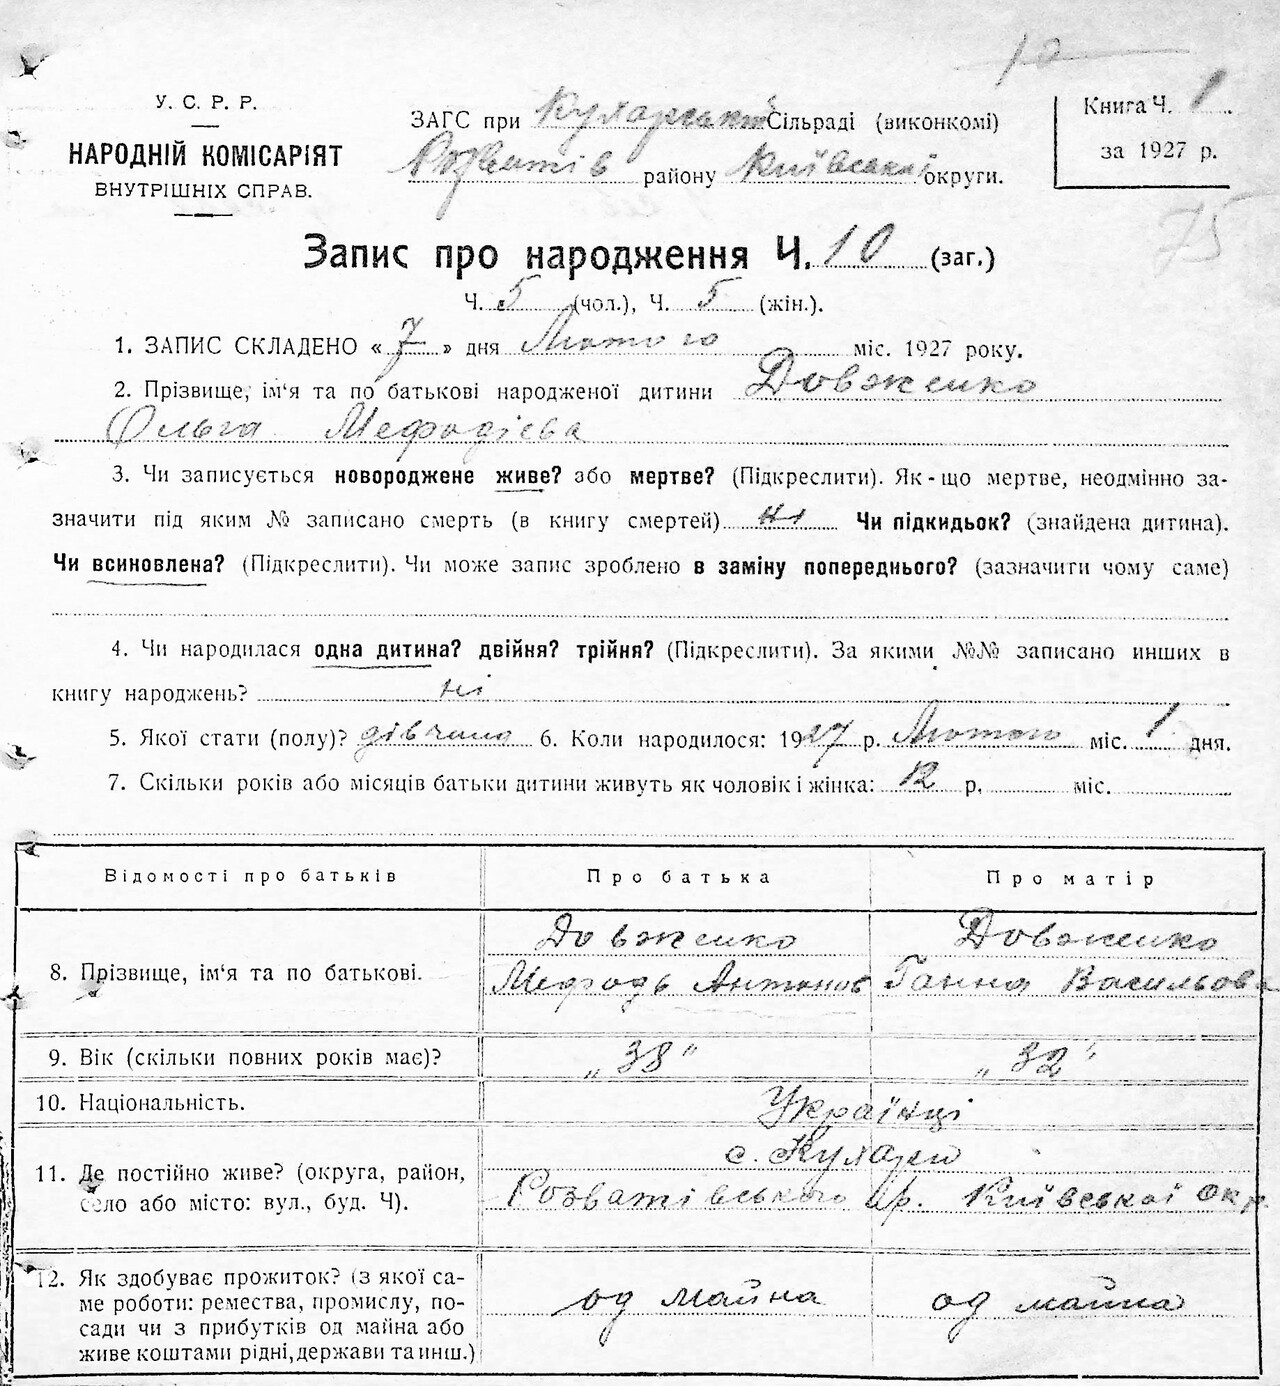 10
У. С. Р. Р.
НАРОДНІЙ КОМІСАРІЯТ
ВНУТРІШНІХ СПРАВ.
ЗАГС при Кухарській Сільраді (виконкомі)
Розватів району Київської округи.
Книга Ч. 1
за 1927 р.
75
Запис про народження Ч. 10 (заг.)
Ч. 5 (чол.), Ч. 5 (жін.).
1. ЗАПИС СКЛАДЕНО « 7 » дня Лютого міс. 1927 року.
2. Прізвище, ім‘я та по батькові народженої дитини Довженко
Ольга Мефодієва
3. Чи записується новороджене живе? або мертве? (Підкреслити). Як-що мертве, неодмінно за-
значити під яким № записано смерть (в книгу смертей) ні Чи підкидьок? (знайдена дитина).
Чи всиновлена? (Підкреслити). Чи може запис зроблено в заміну попереднього? (зазначити чому саме)
4. Чи народилася одна дитина? двійня? трійня? (Підкреслити). За якими №№ записано инших в
книгу народжень? ні
5. Якої стати (полу)? дівчина 6. Коли народилося: 1927 р. Лютого міс. 1 дня.
7. Скільки років або місяців батьки дитини живуть як чоловік і жінка: 12 р. міс.
Відомості про батьків Про батька Про матір
8. Прізвище, ім‘я та по батькові. Довженко Мефодь Антонов Довженко Ганна Васильова
9. Вік (скільки повних років має)? „38“ „32“
10. Національність. Українці
11. Де постійно живе? (округа, район, с. Кухари
село або місто: вул., буд. Ч). Розватівського р. Київської окр.
12. Як здобуває прожиток? (з якої са-
ме роботи: ремества, промислу, по- од майна од майна
сади чи з прибутків од майна або
живе коштами рідні, держави та инш.)